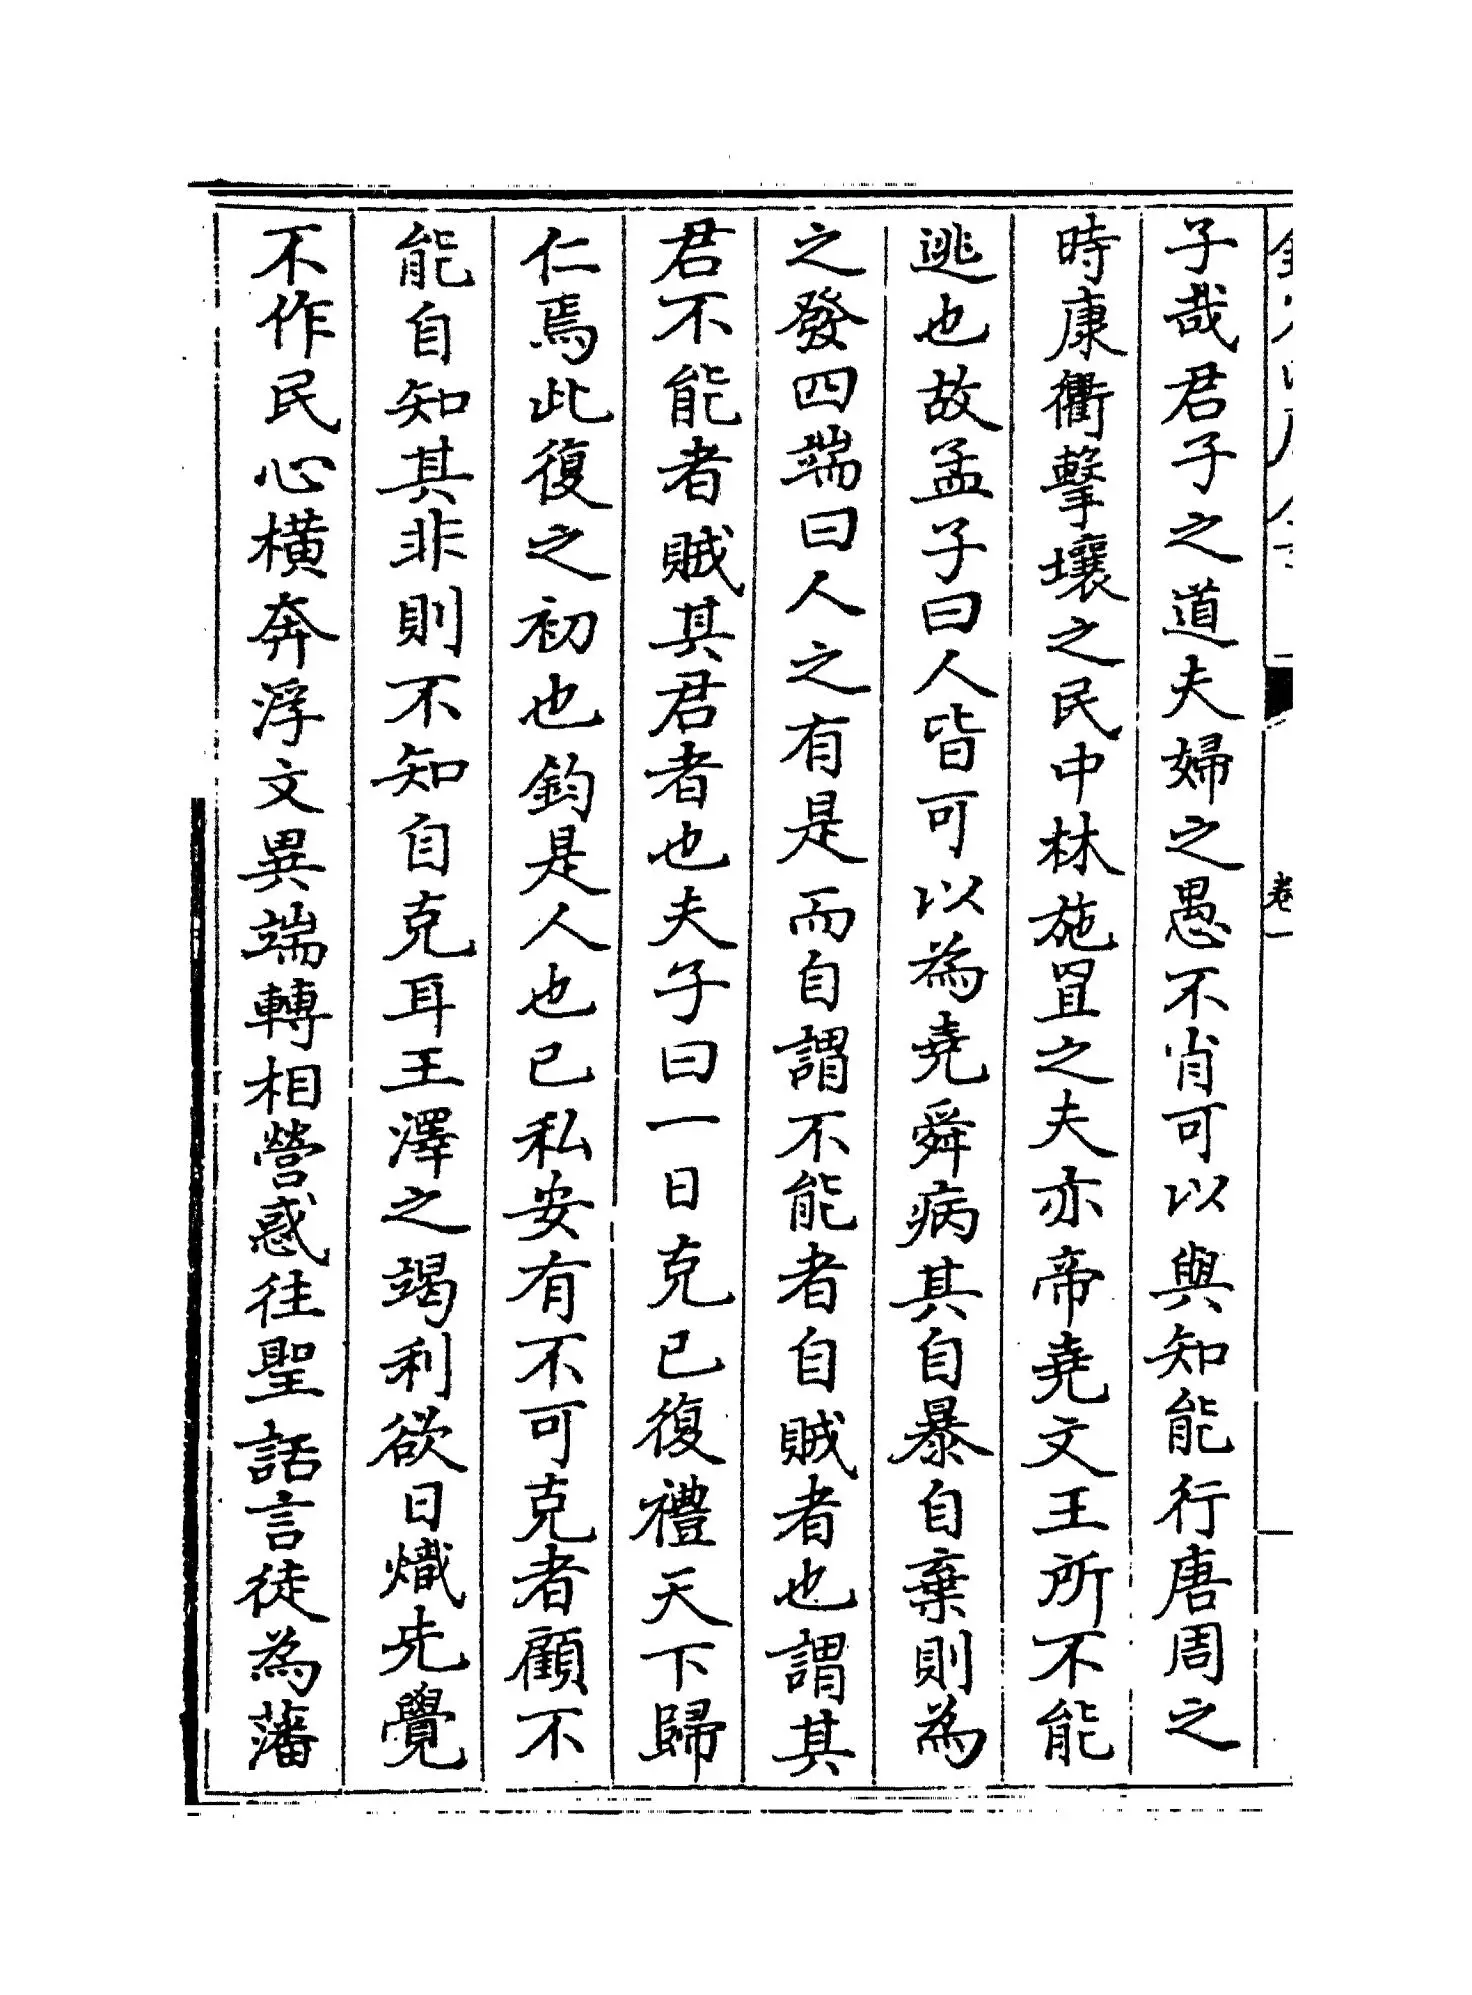 子哉君子之道夫婦之愚不肖可以與知能行唐周之
時康衢擊壤之民中林施罝之夫亦帝堯文王所不能
逃也故孟子曰人皆可以為堯舜病其自暴自棄則為
之發四端曰人之有是而自謂不能者自賊者也謂其
君不能者賊其君者也夫子曰一日克已復禮天下歸
仁焉此復之初也鈞是人也已私安有不可克者顧不
能自知其非則不知自克耳王澤之竭利欲日熾先覺
不作民心橫奔浮文異端轉相營惑往聖話言徒為藩
卷一